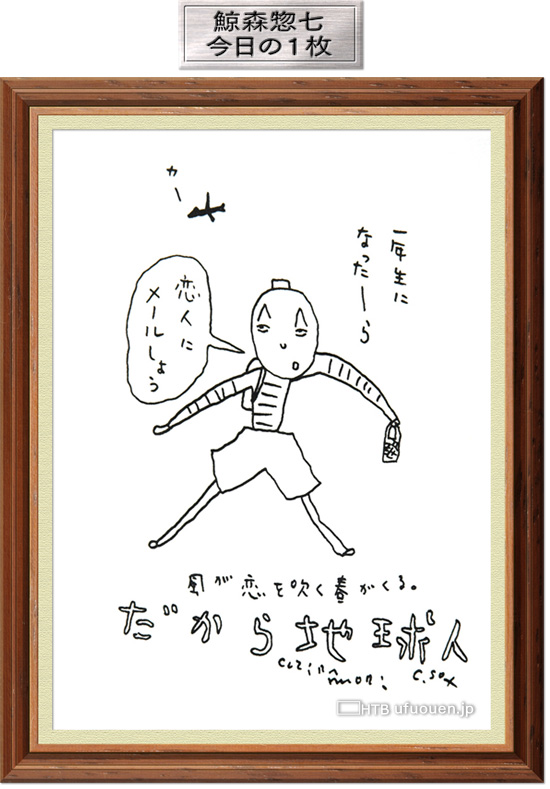 鯨森惣七
今日の1枚
カー
一年生に
なったーら
恋人に
メールしよう
風が恋を吹く春がくる。
だから地球人
HTB ufuouen.jp